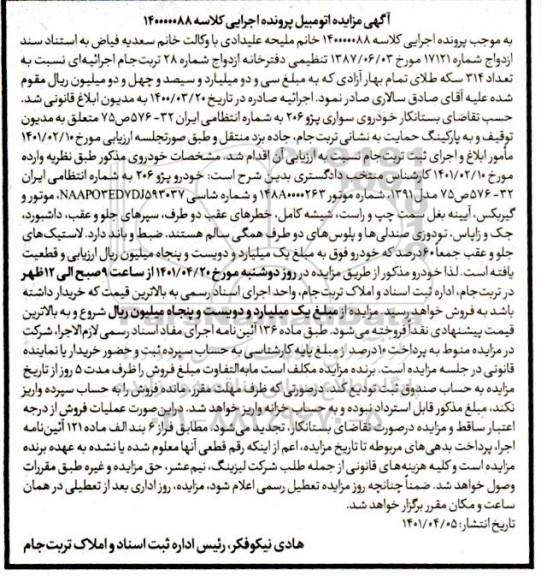 آگهی مزایده اتومبیل پرونده اجرایی کلاسه ۱۴۰۰۰۰۰۸۸
به موجب پرونده اجرایی کلاسه ۱۴۰۰۰۰۰۸۸ خانم ملیحه علیدادی با وکالت خانم سعدیه فیاض به استناد سند
ازدواج شماره ۱۷۱۲۱ مورخ ۱۳۸۷/۰۶/۰۳ تنظیمی دفترخانه ازدواج شماره ۲۸ تربت‌جام اجرائیه‌ای نسبت به
تعداد ۳۱۴ سکه طلای تمام بهار آزادی که به مبلغ سی و دو میلیارد و سیصد و چهل و دو میلیون ریال مقوم
شده علیه آقای صادق سالاری صادر نمود. اجرائیه صادره در تاریخ ۱۴۰۰/۰۳/۲۰ به مدیون ابلاغ قانونی شد.
حسب تقاضای بستانکار خودروی سواری پژو ۲۰۶ به شماره انتظامی ایران ۳۲-۵۷۶ص۷۵ متعلق به مدیون
توقیف و به پارکینگ حمایت به نشانی تربت‌جام، جاده یزد منتقل و طبق صورتجلسه ارزیابی مورخ ۱۴۰۱/۰۲/۱۰
مأمور ابلاغ و اجرای ثبت تربت‌جام نسبت به ارزیابی آن اقدام شد. مشخصات خودروی مذکور طبق نظریه وارده
مورخ ۱۴۰۱/۰۲/۱۰ کارشناس منتخب دادگستری بدین شرح است: خودرو پژو ۲۰۶ به شماره انتظامی ایران
۳۲-۵۷۶ص۷۵ مدل ۱۳۹۱، شماره موتور ۱۴۸A۰۰۰۰۲۶۳ و شماره شاسی NAAP۰۳ED۷DJ۵۹۳۰۳۷، موتور و
گیربکس، آیینه بغل سمت چپ و راست، شیشه کامل، خطرهای عقب دو طرف، سپرهای جلو و عقب، داشبورد،
جک و زاپاس، تودوزی صندلی‌ها و پلوس‌های دو طرف همگی سالم هستند. ضبط و باند دارد. لاستیک‌های
جلو و عقب جمعاً ۶۰درصد که خودرو فوق به مبلغ یک میلیارد و دویست و پنجاه میلیون ریال ارزیابی و قطعیت
یافته است. لذا خودرو مذکور از طریق مزایده در روز دوشنبه مورخ ۱۴۰۱/۰۴/۲۰ از ساعت ۹ صبح الی ۱۲ظهر
در تربت‌جام، اداره ثبت اسناد و املاک تربت‌جام، واحد اجرای اسناد رسمی به بالاترین قیمت که خریدار داشته
باشد به فروش خواهد رسید. مزایده از مبلغ یک میلیارد و دویست و پنجاه میلیون ریال شروع و به بالاترین
قیمت پیشنهادی نقداً فروخته می‌شود. طبق ماده ۱۳۶ آئین‌نامه اجرای مفاد اسناد رسمی لازم‌الاجرا، شرکت
در مزایده منوط به پرداخت ۱۰درصد از مبلغ پایه کارشناسی به حساب سپرده ثبت و حضور خریدار یا نماینده
قانونی در جلسه مزایده است. برنده مزایده مکلف است مابه‌التفاوت مبلغ فروش را ظرف مدت ۵ روز از تاریخ
مزایده به حساب صندوق ثبت تودیع کند. درصورتی که ظرف مهلت مقرر، مانده فروش را به حساب سپرده واریز
نکند، مبلغ مذکور قابل استرداد نبوده و به حساب خزانه واریز خواهد شد. دراین‌صورت عملیات فروش از درجه
اعتبار ساقط و مزایده درصورت تقاضای بستانکار، تجدید می‌شود. مطابق فراز ۶ بند الف ماده ۱۲۱ آئین‌نامه
اجرا، پرداخت بدهی‌های مربوطه تا تاریخ مزایده، اعم از اینکه رقم قطعی آنها معلوم شده یا نشده به عهده برنده
مزایده است و کلیه هزینه‌های قانونی از جمله طلب شرکت لیزینگ، نیم‌عشر، حق مزایده و غیره طبق مقررات
وصول خواهد شد. ضمناً چنانچه روز مزایده تعطیل رسمی اعلام شود، مزایده، روز اداری بعد از تعطیلی در همان
ساعت و مکان مقرر برگزار خواهد شد.
تاریخ انتشار: ۱۴۰۱/۰۴/۰۵
هادی نیکوفکر، رئیس اداره ثبت اسناد و املاک تربت‌جام